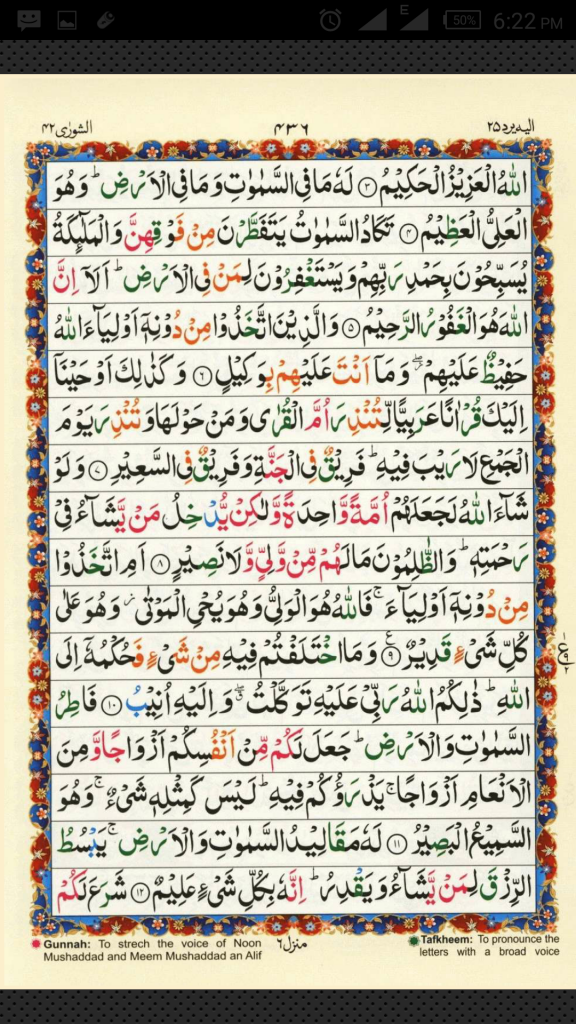 E
50%
6:22 PM
الیه یرد ۲۵
۴۳۶
الشورٰی ۴۲
اللّٰهُ الْعَزِیْزُ الْحَكِیْمُ ۳ لَهٗ مَا فِی السَّمٰوٰتِ وَمَا فِی الْاَرْضِ ؕ وَهُوَ
الْعَلِیُّ الْعَظِیْمُ ۴ تَكَادُ السَّمٰوٰتُ یَتَفَطَّرْنَ مِنْ فَوْقِهِنَّ وَالْمَلٰٓئِكَةُ
یُسَبِّحُوْنَ بِحَمْدِ رَبِّهِمْ وَیَسْتَغْفِرُوْنَ لِمَنْ فِی الْاَرْضِ ؕ اَلَاۤ اِنَّ
اللّٰهَ هُوَ الْغَفُوْرُ الرَّحِیْمُ ۵ وَالَّذِیْنَ اتَّخَذُوْا مِنْ دُوْنِهٖۤ اَوْلِیَآءَ اللّٰهُ
حَفِیْظٌ عَلَیْهِمْ ۖؗ وَمَاۤ اَنْتَ عَلَیْهِمْ بِوَكِیْلٍ ۶ وَكَذٰلِكَ اَوْحَیْنَاۤ
اِلَیْكَ قُرْاٰنًا عَرَبِیًّا لِّتُنْذِرَ اُمَّ الْقُرٰی وَمَنْ حَوْلَهَا وَتُنْذِرَ یَوْمَ
الْجَمْعِ لَا رَیْبَ فِیْهِ ؕ فَرِیْقٌ فِی الْجَنَّةِ وَفَرِیْقٌ فِی السَّعِیْرِ ۷ وَلَوْ
شَآءَ اللّٰهُ لَجَعَلَهُمْ اُمَّةً وَّاحِدَةً وَّلٰكِنْ یُّدْخِلُ مَنْ یَّشَآءُ فِیْ
رَحْمَتِهٖ ؕ وَالظّٰلِمُوْنَ مَا لَهُمْ مِّنْ وَّلِیٍّ وَّلَا نَصِیْرٍ ۸ اَمِ اتَّخَذُوْا
مِنْ دُوْنِهٖۤ اَوْلِیَآءَ ۚ فَاللّٰهُ هُوَ الْوَلِیُّ وَهُوَ یُحْیِ الْمَوْتٰی ؗ وَهُوَ عَلٰی
كُلِّ شَیْءٍ قَدِیْرٌ ۹ وَمَا اخْتَلَفْتُمْ فِیْهِ مِنْ شَیْءٍ فَحُكْمُهٗۤ اِلَی
اللّٰهِ ؕ ذٰلِكُمُ اللّٰهُ رَبِّیْ عَلَیْهِ تَوَكَّلْتُ ۖۗ وَاِلَیْهِ اُنِیْبُ ۱۰ فَاطِرُ
السَّمٰوٰتِ وَالْاَرْضِ ؕ جَعَلَ لَكُمْ مِّنْ اَنْفُسِكُمْ اَزْوَاجًا وَّمِنَ
الْاَنْعَامِ اَزْوَاجًا ۚ یَذْرَؤُكُمْ فِیْهِ ؕ لَیْسَ كَمِثْلِهٖ شَیْءٌ ۚ وَهُوَ
السَّمِیْعُ الْبَصِیْرُ ۱۱ لَهٗ مَقَالِیْدُ السَّمٰوٰتِ وَالْاَرْضِ ۚ یَبْسُطُ
الرِّزْقَ لِمَنْ یَّشَآءُ وَیَقْدِرُ ؕ اِنَّهٗ بِكُلِّ شَیْءٍ عَلِیْمٌ ۱۲ شَرَعَ لَكُمْ
Gunnah: To strech the voice of Noon
Mushaddad and Meem Mushaddad an Alif
منزل ۶
Tafkheem: To pronounce the
letters with a broad voice